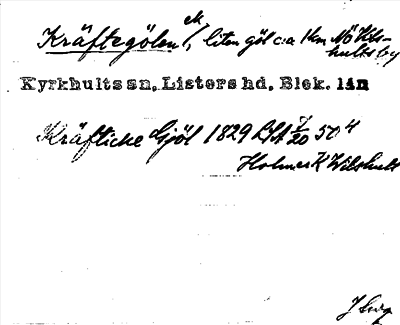 Kräftegölen, ek, liten göl c:a 1 km NÖ Vils-
hults by
Kyrkhults sn. Listers hd. Blek. län
Kräfticke Gjöl 1829 LSA 50 4
Holmar K Wilshult